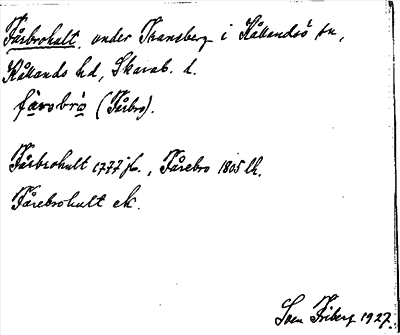 Fårbrohult, under Transberg i Kållandsö sn,
Kållands hd, Skarab. l.
fårobrò (Fårbro).
Fårbrohult 1777 jb., Fårebro 1805 lh.
Fårebrohult ek.
Sven Friberg 1927.